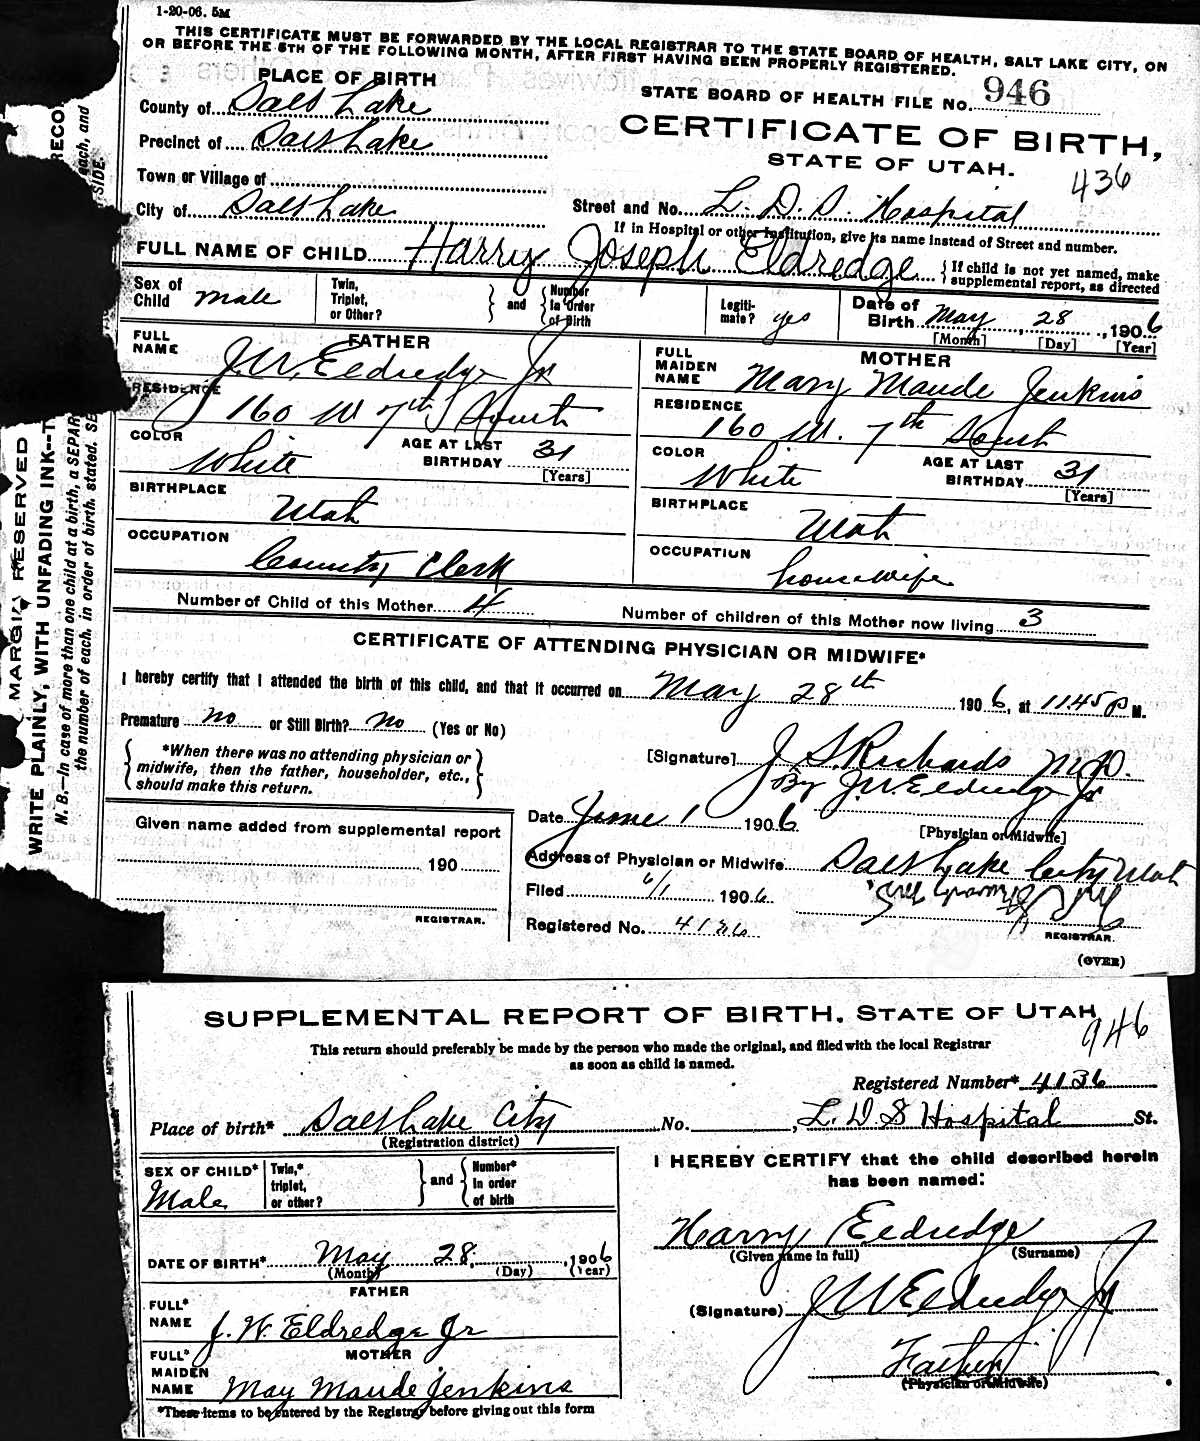 1-20-06. 5M
THIS CERTIFICATE MUST BE FORWARDED BY THE LOCAL REGISTRAR TO THE STATE BOARD OF HEALTH, SALT LAKE CITY, ON
OR BEFORE THE 5TH OF THE FOLLOWING MONTH, AFTER FIRST HAVING BEEN PROPERLY REGISTERED.
PLACE OF BIRTH
STATE BOARD OF HEALTH FILE No. 946
County of Salt Lake
CERTIFICATE OF BIRTH,
Precinct of Salt Lake
STATE OF UTAH.
436
Town or Village of
City of Salt Lake
Street and No. L. D. S. Hospital
If in Hospital or other Institution, give its name instead of Street and number.
FULL NAME OF CHILD Harry Joseph Eldredge
{If child is not yet named, make
supplemental report, as directed
Sex of
Child Male
Twin,
Triplet,
or Other?
} and {
Number
in Order
of Birth
Legiti-
mate? yes
Date of
Birth May, 28, 1906
[Month] [Day] [Year]
FULL
NAME
FATHER
J. W. Eldredge Jr
RESIDENCE
160 W 7th South
COLOR
White
AGE AT LAST
BIRTHDAY 31
[Years]
BIRTHPLACE
Utah
OCCUPATION
County Clerk
FULL
MAIDEN
NAME
MOTHER
Mary Maude Jenkins
RESIDENCE
160 W. 7th South
COLOR
White
AGE AT LAST
BIRTHDAY 31
[Years]
BIRTHPLACE
Utah
OCCUPATION
housewife
Number of Child of this Mother 4
Number of children of this Mother now living 3
CERTIFICATE OF ATTENDING PHYSICIAN OR MIDWIFE*
I hereby certify that I attended the birth of this child, and that it occurred on May 28th 1906, at 11.45 P M.
Premature no or Still Birth? no (Yes or No)
{ *When there was no attending physician or
midwife, then the father, householder, etc.,
should make this return. }
[Signature] J. S. Richards M.D.
By J. W. Eldredge Jr
[Physician or Midwife]
Date June 1 1906
Given name added from supplemental report
190
REGISTRAR.
Address of Physician or Midwife Salt Lake City Utah
Filed 6/1 1906
Registered No. 4136
REGISTRAR.
(OVER)
MARGIN RESERVED
WRITE PLAINLY, WITH UNFADING INK--T
RECO
N. B.—In case of more than one child at a birth, a SEPAR
each, and
the number of each, in order of birth, stated. SE
SIDE.
SUPPLEMENTAL REPORT OF BIRTH. STATE OF UTAH.
946
This return should preferably be made by the person who made the original, and filed with the local Registrar
as soon as child is named.
Registered Number* 4136
Place of birth* Salt Lake City No. , L. D. S Hospital St.
(Registration district)
SEX OF CHILD*
Male
Twin,*
triplet,
or other?
} and {
Number*
in order
of birth
I HEREBY CERTIFY that the child described herein
has been named:
Harry Eldredge
(Given name in full) (Surname)
DATE OF BIRTH* May 28, 1906
(Month) (Day) (Year)
FATHER
FULL*
NAME
J. W. Eldredge Jr
(Signature) J W Eldredge Jr
MOTHER
FULL*
MAIDEN
NAME
May Maude Jenkins
Father
(Physician or Midwife)
*These items to be entered by the Registrar before giving out this form